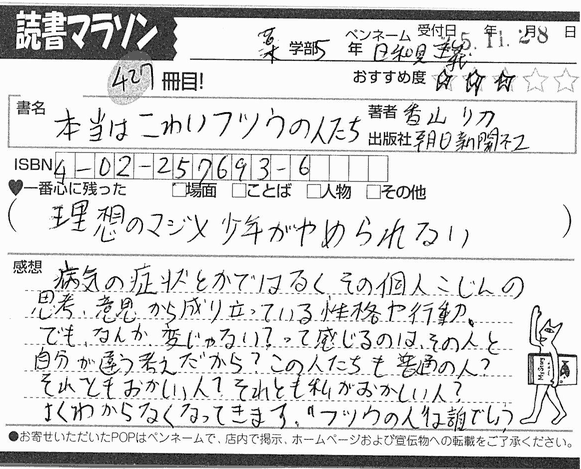 読書マラソン
薬 学部 5 年 ペンネーム 日和見主義 受付日 年 11月 28日
427 冊目!
おすすめ度 ★★★☆☆
書名 本当はこわいフツウの人たち
著者 香山リカ
出版社 朝日新聞社
ISBN 4-02-257693-6
♥一番心に残った □場面 □ことば □人物 □その他
(理想のマジメ少年がやめられない)
感想
病気の症状とかではなくその個人こじんの
思考、意見から成り立っている性格や行動。
でも、なんか変じゃない?って感じるのは、その人と
自分が違う考えだから?この人たちも普通の人?
それともおかしい人?それとも私がおかしい人?
よくわからなくなってきます。"フツウの人"は誰でしょう?
●お寄せいただいたPOPはペンネームで、店内で掲示、ホームページおよび宣伝物への転載をご了承ください。